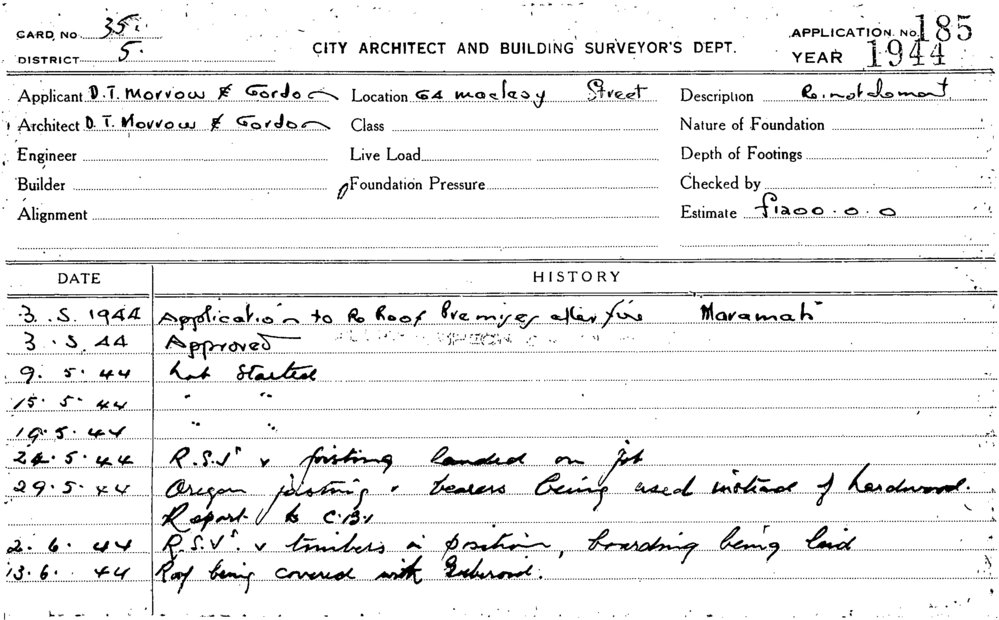 CARD, No. 35.
DISTRICT 5.
CITY ARCHITECT AND BUILDING SURVEYOR'S DEPT.
APPLICATION. No. 185
YEAR 1944
Applicant D.T. Morrow & Gordon Location 64 Macleay Street Description
Architect D.T. Morrow & Gordon Class Nature of Foundation
Engineer Live Load Depth of Footings
Builder Foundation Pressure Checked by
Alignment Estimate £1200.0.0
DATE HISTORY
3.5.1944 Application to Re Roof Premises after fire
3.5.44 Approved
9.5.44 Not Started
15.5.44 " "
19.5.44 " "
24.5.44 R.S.J's & joisting landed on job
29.5.44 Oregon joisting & bearers being used instead of hardwood.
Report to
2.6.44 R.S.J's. & timbers in position, boarding being laid
13.6.44 Roof being covered with